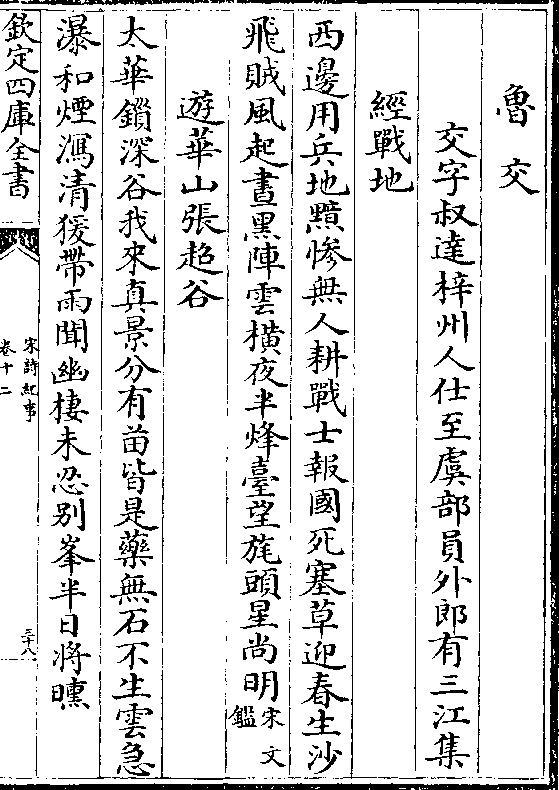 魯交
交字叔達梓州人仕至虞部員外郎有三江集
經戰地
西邊用兵地黯慘無人耕戰士報國死塞草迎春生沙
飛賊風起晝黑陣雲橫夜半烽臺望旄頭星尚明宋文鑑
遊華山張超谷
太華鎻深谷我來真景分有苗皆是藥無石不生雲急
瀑和煙瀉清猨帶雨聞幽棲未忍别峯半日將曛
欽定四庫全書
宋詩紀事
卷十二
三十八